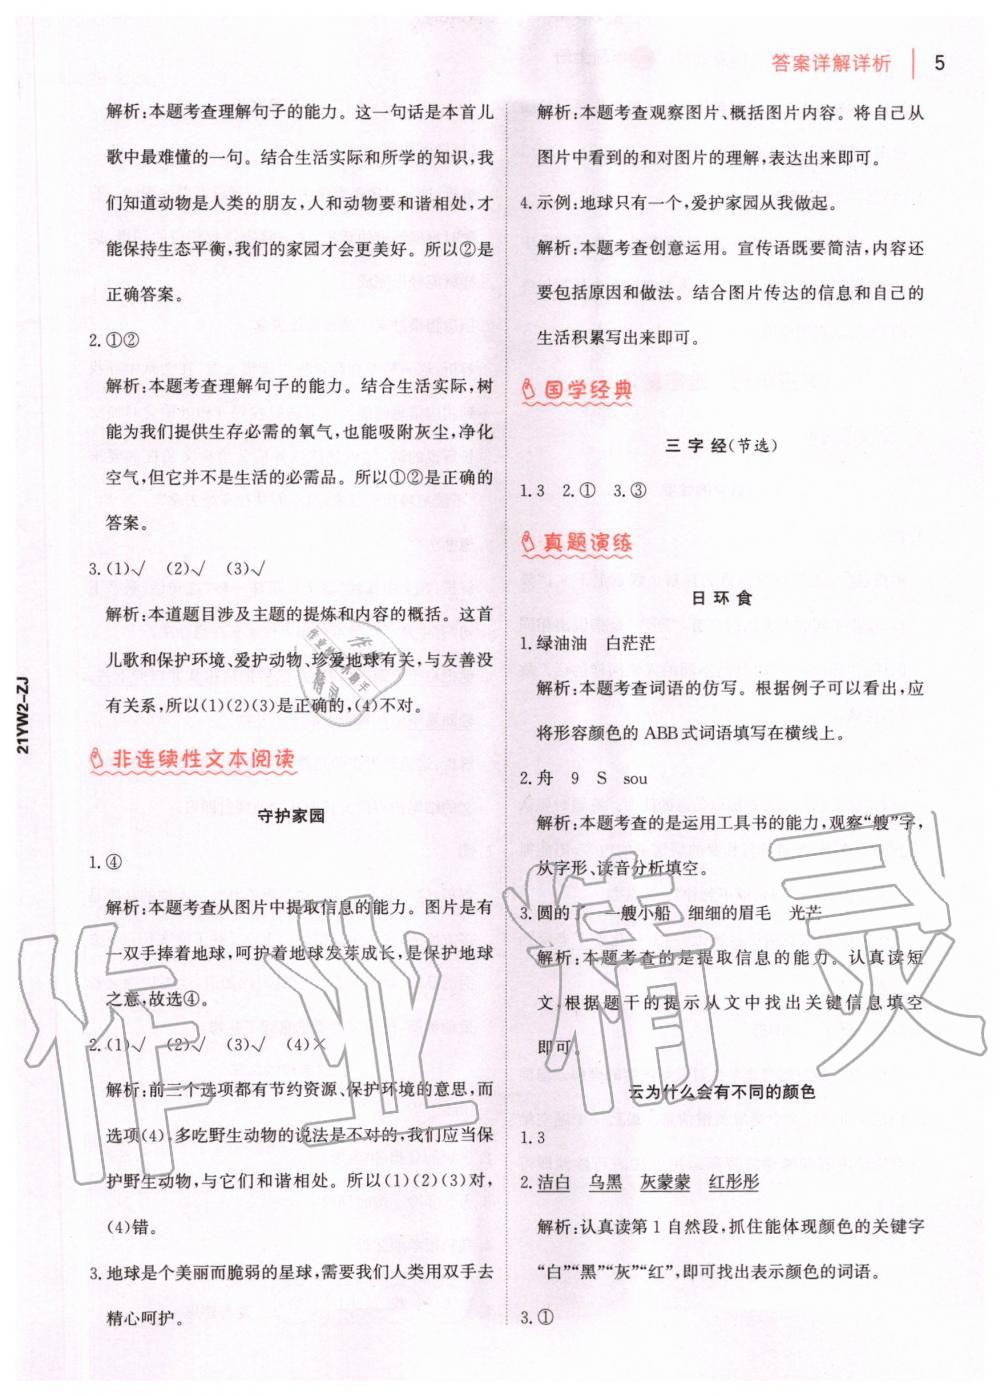 答案详解详析 5
解析:本题考查理解句子的能力。这一句话是本首儿
歌中最难懂的一句。结合生活实际和所学的知识,我
们知道动物是人类的朋友,人和动物要和谐相处,才
能保持生态平衡,我们的家园才会更美好。所以②是
正确答案。
2.①②
解析:本题考查理解句子的能力。结合生活实际,树
能为我们提供生存必需的氧气,也能吸附灰尘,净化
空气,但它并不是生活的必需品。所以①②是正确的
答案。
3.(1)√ (2)√ (3)√
解析:本道题目涉及主题的提炼和内容的概括。这首
儿歌和保护环境、爱护动物、珍爱地球有关,与友善没
有关系,所以(1)(2)(3)是正确的,(4)不对。
非连续性文本阅读
守护家园
1.④
解析:本题考查从图片中提取信息的能力。图片是有
一双手捧着地球,呵护着地球发芽成长,是保护地球
之意,故选④。
2.(1)√ (2)√ (3)√ (4)×
解析:前三个选项都有节约资源、保护环境的意思,而
选项(4),多吃野生动物的说法是不对的,我们应当保
护野生动物,与它们和谐相处。所以(1)(2)(3)对,
(4)错。
3.地球是个美丽而脆弱的星球,需要我们人类用双手去
精心呵护。
21YW2-ZJ
解析:本题考查观察图片、概括图片内容。将自己从
图片中看到的和对图片的理解,表达出来即可。
4.示例:地球只有一个,爱护家园从我做起。
解析:本题考查创意运用。宣传语既要简洁,内容还
要包括原因和做法。结合图片传达的信息和自己的
生活积累写出来即可。
国学经典
三字经(节选)
1.3 2.① 3.③
真题演练
日环食
1.绿油油 白茫茫
解析:本题考查词语的仿写。根据例子可以看出,应
将形容颜色的ABB式词语填写在横线上。
2.舟 9 S sou
解析:本题考查的是运用工具书的能力,观察“艘”字,
从字形、读音分析填空。
3.圆的 一艘小船 细细的眉毛 光芒
解析:本题考查的是提取信息的能力。认真读短
文,根据题干的提示从文中找出关键信息填空
即可。
云为什么会有不同的颜色
1.3
2.洁白 乌黑 灰蒙蒙 红彤彤
解析:认真读第1自然段,抓住能体现颜色的关键字
“白”“黑”“灰”“红”,即可找出表示颜色的词语。
3.①
作业精灵